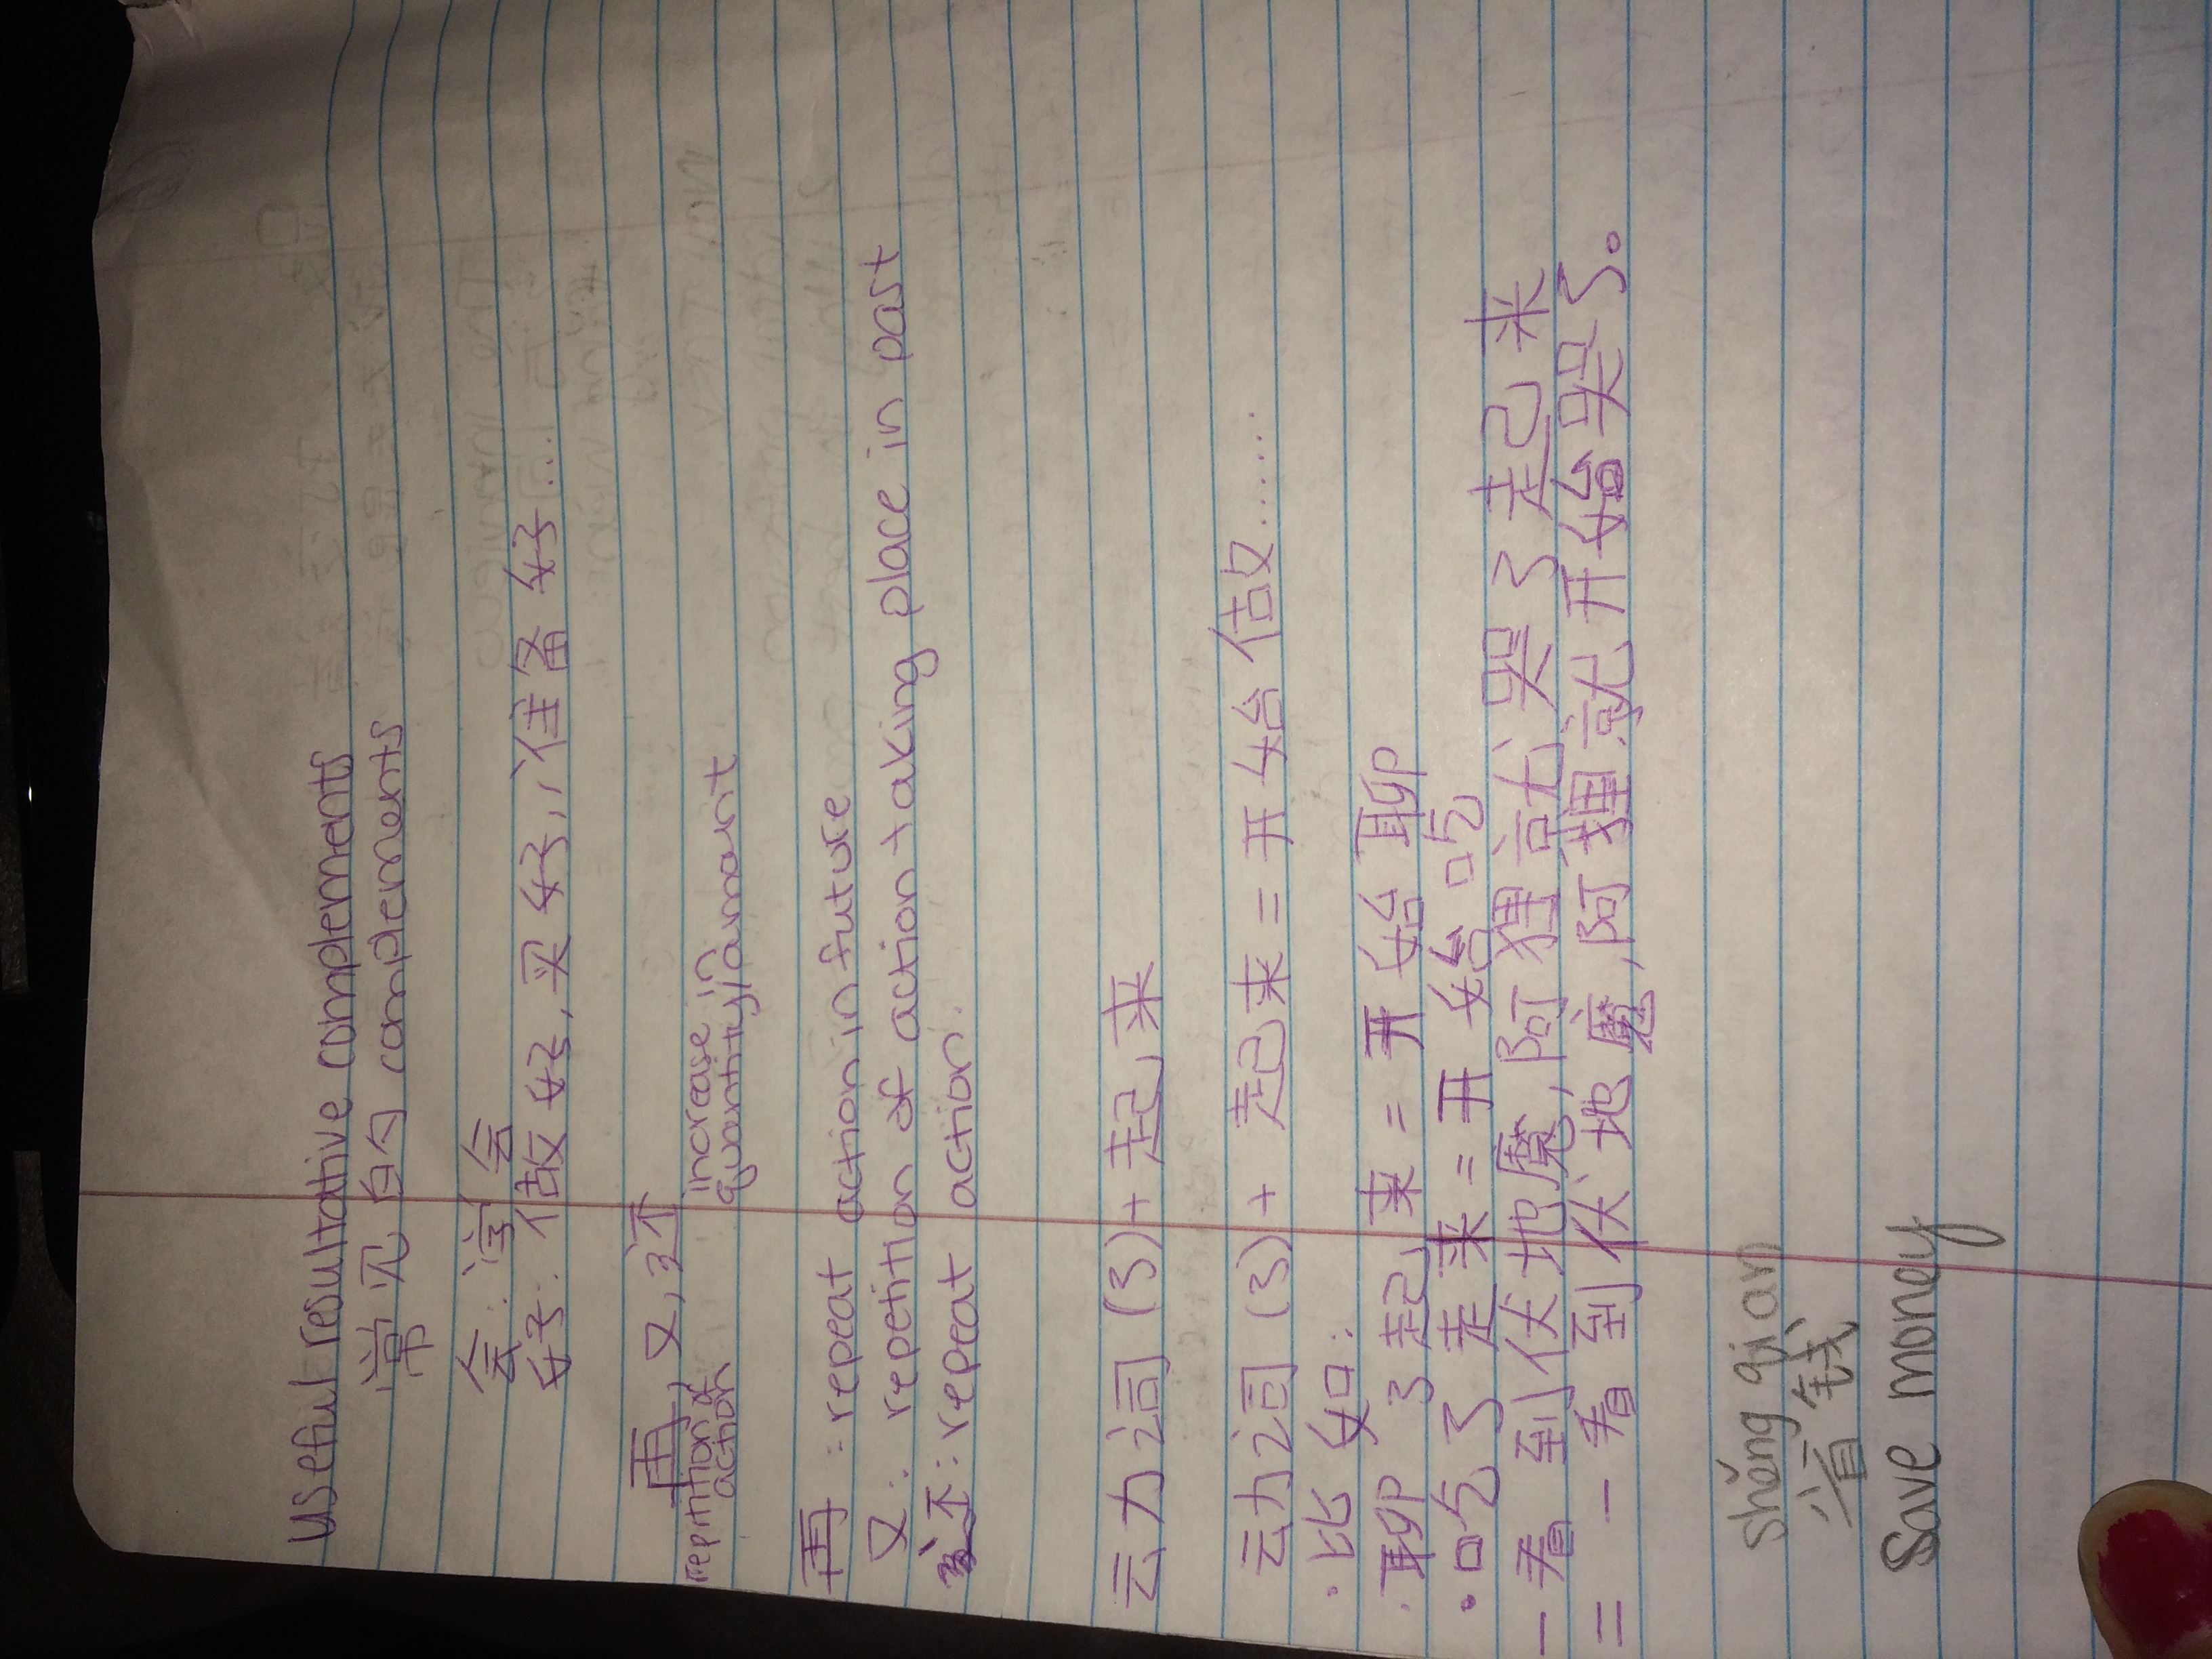 Useful resultative complements
常见的 complements
会: 学会
好: 做好, 买好, 准备好...
再, 又, 还
repitition of action
increase in quantity/amount
再: repeat action in future
又: repetition of action taking place in past
还: repeat action.
动词(了)+起来
动词(了)+起来=开始做......
·比如:
·聊了起来=开始聊
·吃了起来=开始吃
一看到伏地魔,阿狸就哭了起来
=一看到伏地魔,阿狸就开始哭了。
shěng qian
省钱
Save money